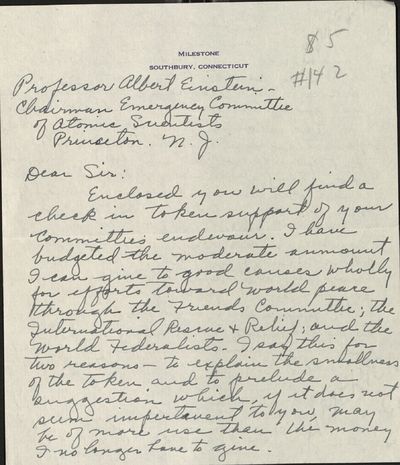 MILESTONE
SOUTHBURY, CONNECTICUT
$5
#142
Professor Albert Einstein -
Chairman Emergency Committee
of Atomic Scientists
Princeton. N. J.
Dear Sir:
Enclosed you will find a
check in token support of your
committees endeavour. I have
budgeted the moderate ammount
I can give to good causes wholly
for efforts toward world peace
through the Friends Committee; the
International Rescue & Relief; and the
World Federalists. I say this for
two reasons - to explain the smallness
of the token and to prelude a
suggestion which, if it does not
seem impertanent to you, may
be of more use than the money
I no longer have to give.